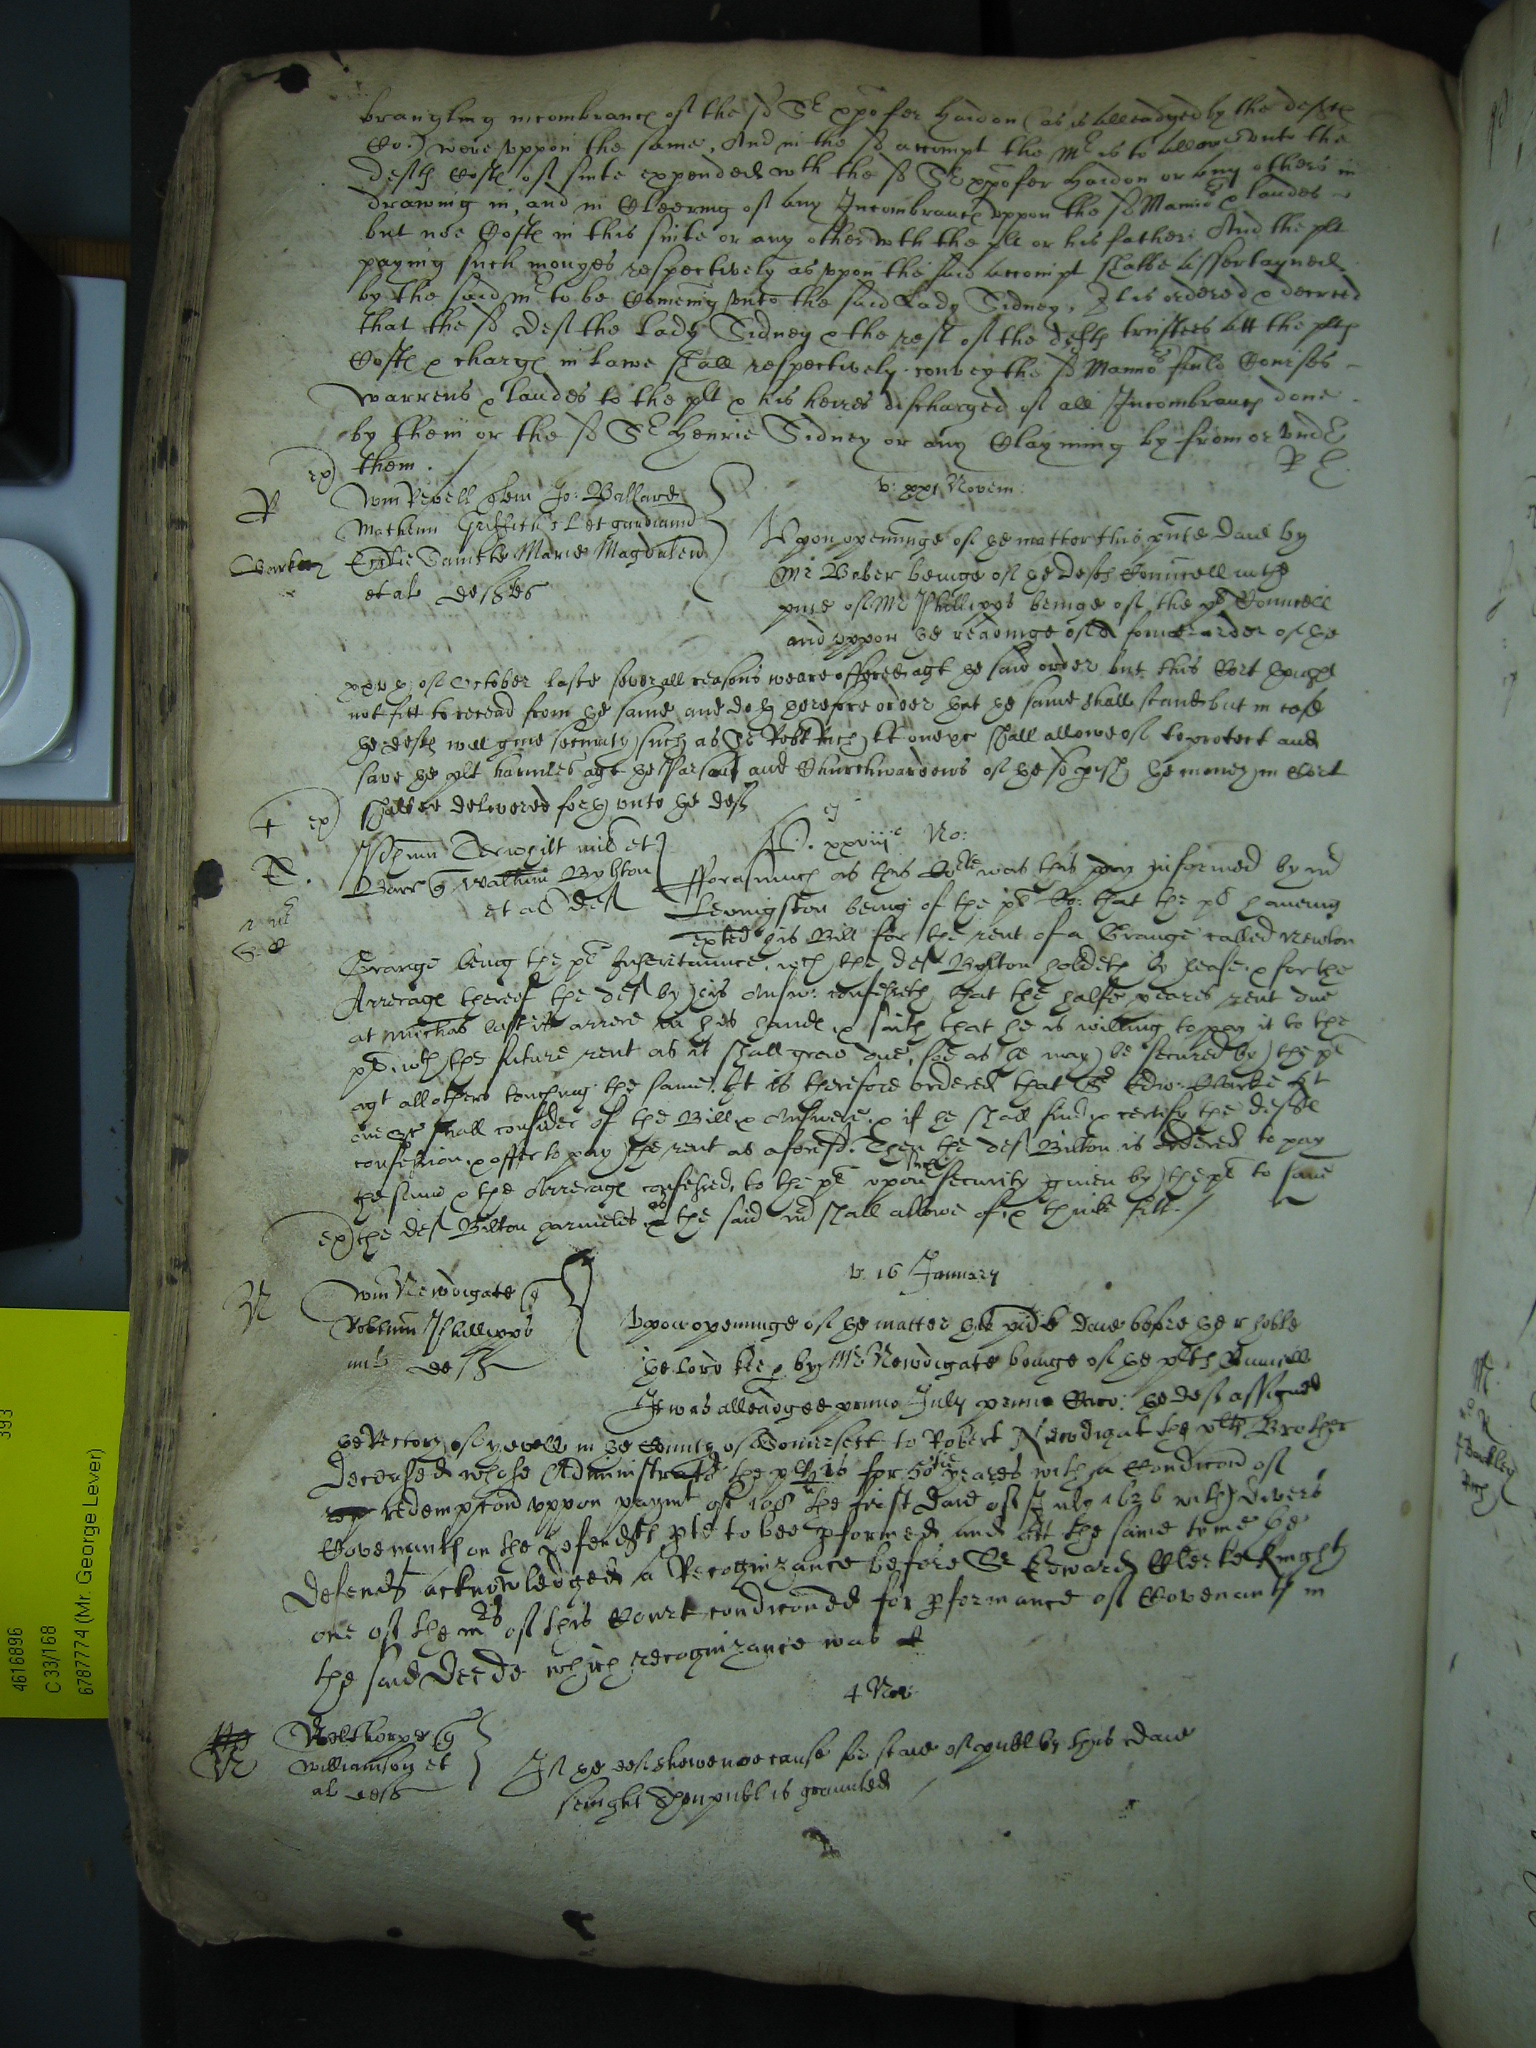 brangling incombrance of the sd Sr xpofer Haidon (as is alleadged by the defts
Co:) were vppon the same, And in the sd accompt the Mr is to allow vnto the
defts Costs of suite expended wth the sd Sr xpofer Haidon or any others in
drawing in, and in Cleering of any Incombrance vppon the sd Mannor & landes
but noe Costs in this suite or any other wth the plt or his father. And the plt
paying such monyes respectively as vpon the said accompt shalbe assertayned
by the said Mr to be Coming vnto the said Lady Sidney, It is ordered & decreed
that the sd deft the Lady Sidney & the rest of the defts trustees att the plts
Costs & charges in lawe shall respectively convey the sd Mannor fould Courses
warrens & landes to the plt & his heires discharged of all Incombrances done
by them or the sd Sr Henrie Sidney or any Clayming by from or vnder
them.
ex
R
Wm Revell Jo: Ballard
v: xxi Novem:
Mathum Griffith Cler gardiand
Vpon openinge of ye matter this pnte daie by
Eccliē Sancte Marie Magdalen
Mr Baber beinge of ye defts Councell in the
et al defts
pnce of Mr Phillipps beinge of the pls Councell
and vppon ye readinge of a former order of ye
of October laste severall reasons weare offered agt ye said order but this Cort
not fitt to recead from ye same and doth therefore order yat ye same shall stand but in case
ye defts will give security such as Sr Robt Rich kt one &c shall allowe of to protect and
save ye plt harmles agt ye Parson and Churchwardens of ye sd prish ye money in Cort
shalbe delivered forth vnto ye deft
+ ex
Terwhilt mil et
xxviij No:
R.
Barr Walterm Bylton
fforasmuch as this Cort was this day informed by Mr
et al def
Levingston being of the pl Co: that the pl having
exhted his Bill for the rent of a Grange called Newton
Grange being the pl Inheritaunce, wch the def Bylton holdeth by lease, & for the
Arrerages thereof the def by his Answ: confesseth that the halfe yeares rent due
at Michas last is arrere in his hands & saith that he is willing to pay it to the
pl, wth the future rent as it shall grow due, soe as he may be secured by the pl
agt all others touching the same. It is therefore ordered that Sr Edw: Clarke Kt
one &c shall consider of the Bill & Answere, & if he shall find & certify the defts
confession & offer to pay the rent as aforesd. Then the def Bilton is ordered to pay
the same & the Arrerages confessed, to the pl vpon such security given by the pl to save
ex the def Bilton harmeles as the said Mr shall allowe of & thinke fitt.
v. 16 January
R
Wm Newdigate
Robtum Phillipps
Vpon openinge of ye matter this pnte daie before ye r: noble
mil deft
ye lord keep: by Mr Newdigate beinge of ye plts Councell
It was alleadged primo July primo Caro: ye deft assigned
ye Rectory of yevell in ye County of Somersett to Robert Newdigat the plts Brother
deceased whose Administrator the plt is for 50tie yeares with a Condicion of
redempcon vppon paymt of the first daie of July 1626 with divers
Covenants on the defendts pte to bee pformed and att the same tyme ye
defendt acknowledged a Recognizance before Sr Edward Clerke Knight
one of the Mrs of this Court condiconed for pformance of Covenants in
the said deede which recognizance was
4 Nov
R
Welthorpe
Williamson et
If ye deft shewe noe cause for staie of publ by this daie
al defts
senight then publ is graunted
4616896
C 33/168
6787774 (Mr. George Lever)
393